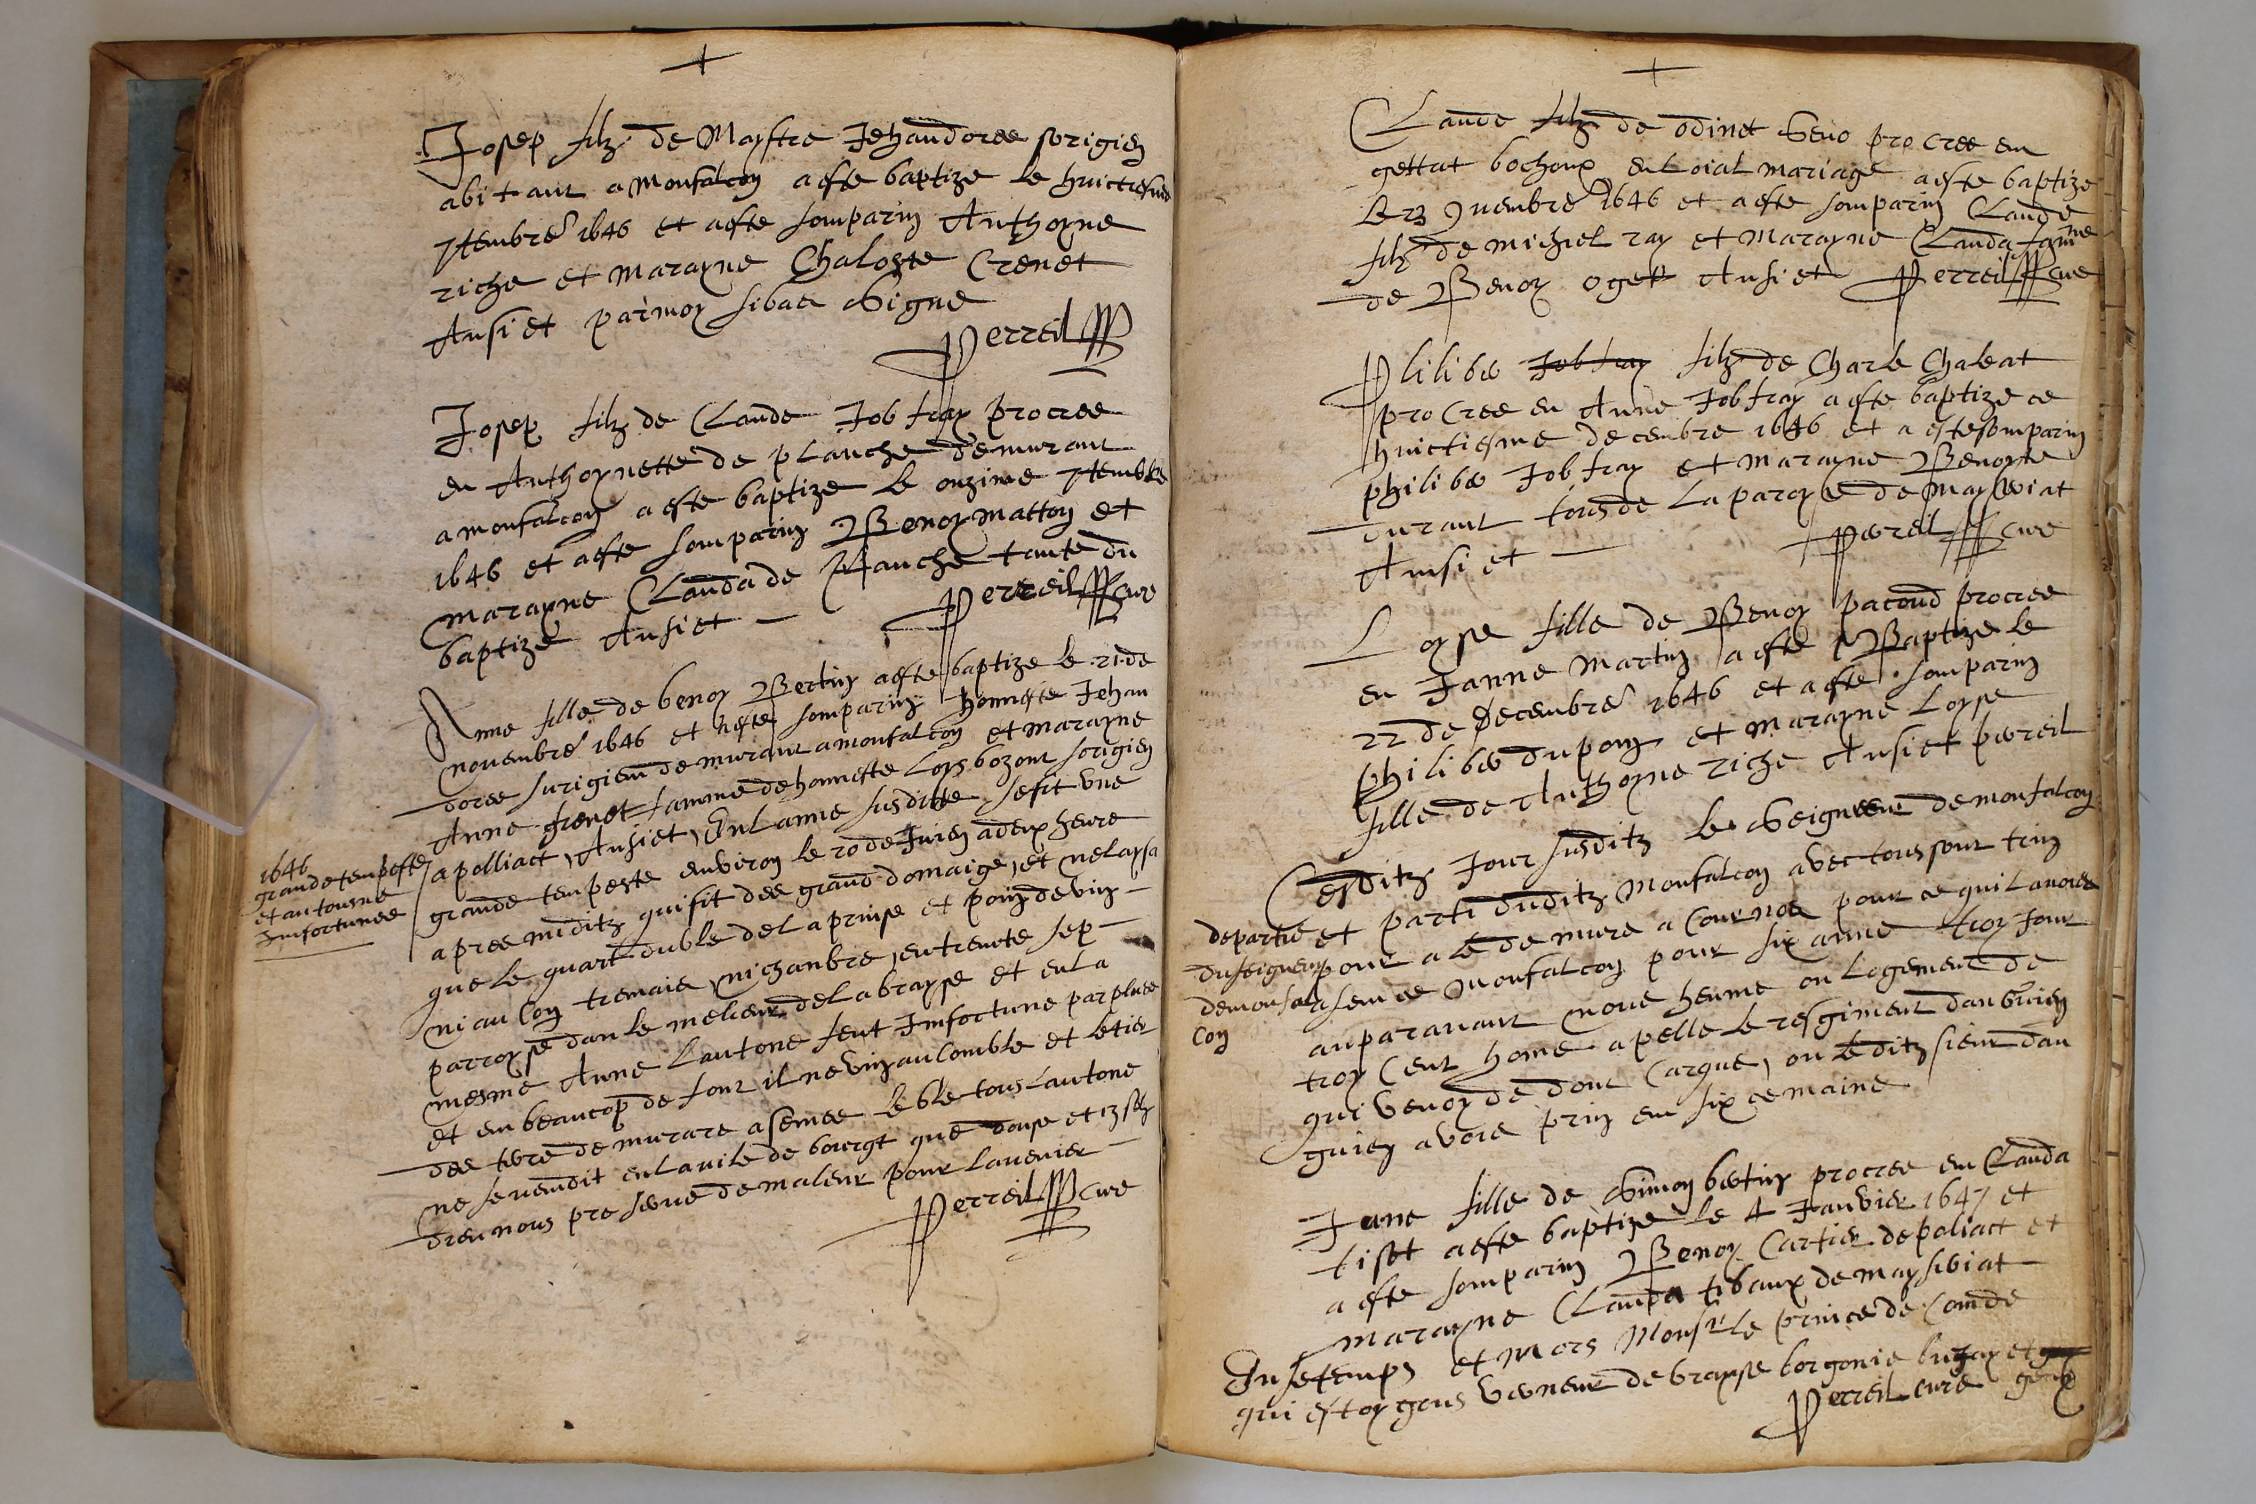 Josep filz de Maystre Jehan doree sorigien
abitant a monfalcon a este baptize le huictiesme
7tembre 1646 et a este som parin Anthoyne
riche et marayne Chaloste Crenet
Ausi et par moy sibas signe
Perreil
Josep filz de Claude Jobfray procree
en Anthoynette de planche demurant
a monfalcon a este baptize le onzime 7tembre
1646 et a este som parin Benoy matton et
marayne Clauda de Planche tante du
baptize Ausi et Perreil cure
Anne fille de benoy Bertin a este baptize le 21 de
novembre 1646 et a este som parin honneste Jehan
doree surigien demurant a monfalcon et marayne
Anne frenet famme de honneste Loys bozont sorigien
a polliact, Ausi et, En l anne susditte se fit une
1646
grande tempeste
et autousne
Imfortunee
grande tempeste environ le 20 de Juien a deux heure
apree miditz qui fit dee grand domaige, et ne laysa
que le quart du ble de la prinse et poin de vin
ni au lon tremaie, ni chanbre, en trente sep
parroyse dan le melieur de la brayse et en la
mesme Anne Lautone feut Imfortune par pluee
et em beaucop de four il ne vin au comble et le tier
dee terre demurare a semee le ble tous lautone
ne se vendit en la vile de bourgt que douse et 13 sol
dieu nous preserve de maleur pour l avenier
Perreil cure
Claude filz de odinet Geno procree em
gettat bochoux en loial mariage a este baptize
le 23 9vembre 1646 et a este som parin Claude
filz de michiel ray et marayne Clauda famme
de Benoy oget Ausi et Perreil cure
Plilibe Jobfray filz de Charle Chaleat
procree en Anne Jobfray a este baptize ce
huictiesme decembre 1646 et a este som parin
philibe Jobfray et marayne Benoyne
durant tous de la paroyse de Maysiviat
Ausi et Perreil cure
Loyse fille de Benoy pacoud procree
en Janne Martin a este Baptize le
22 de Decembre 1646 et a este som parin
philibe du pon et marayne Loyse
fille de Anthoyne riche Ausi et Perreil
Cesditz Jour susditz le seigneeur de monfalcon
departie
du seigneur
de monfal
con
et parti duditz Monfalcon avec tous sont trin
pour ale demure a Cournoe pour ce quil avoiee
asemee Monfalcon pour six anne troy jour
auparavant nous heume on logement de
troy cent home apelle le resgiment danguien
qui venoy de donc Carque, ou leditz sieur dan
guien avoie prin em six cemaine
Jane fille de Simon bertin procree em Clauda
tiset a este baptize le 4 Janvier 1647 et
a este som parin Benoy Cartier de poliact et
marayne Clauda tibaux de maysibiat
En se temps et mors Monsr le prince de Comde
qui estoy gouverneur de brayse borgonie bugay et
Perreil cure gex